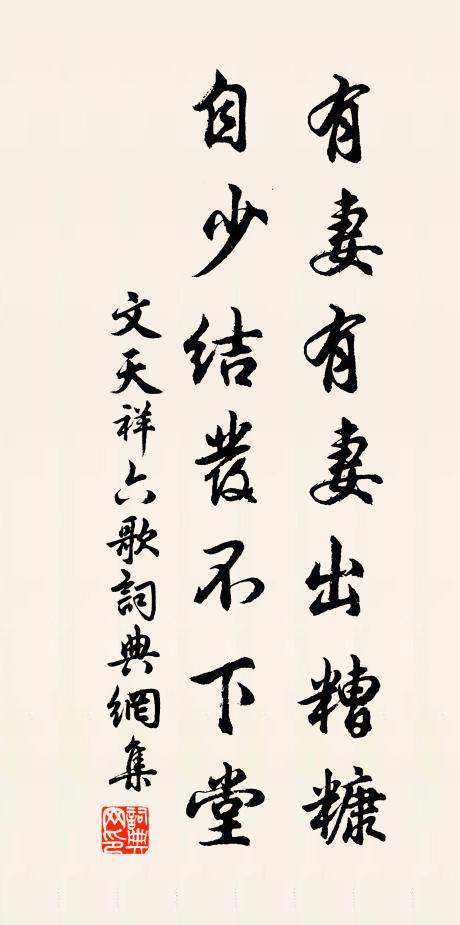 有妻有妻出糟糠
自少结發不下堂
文天祥六歌詞典網集
詞典網印